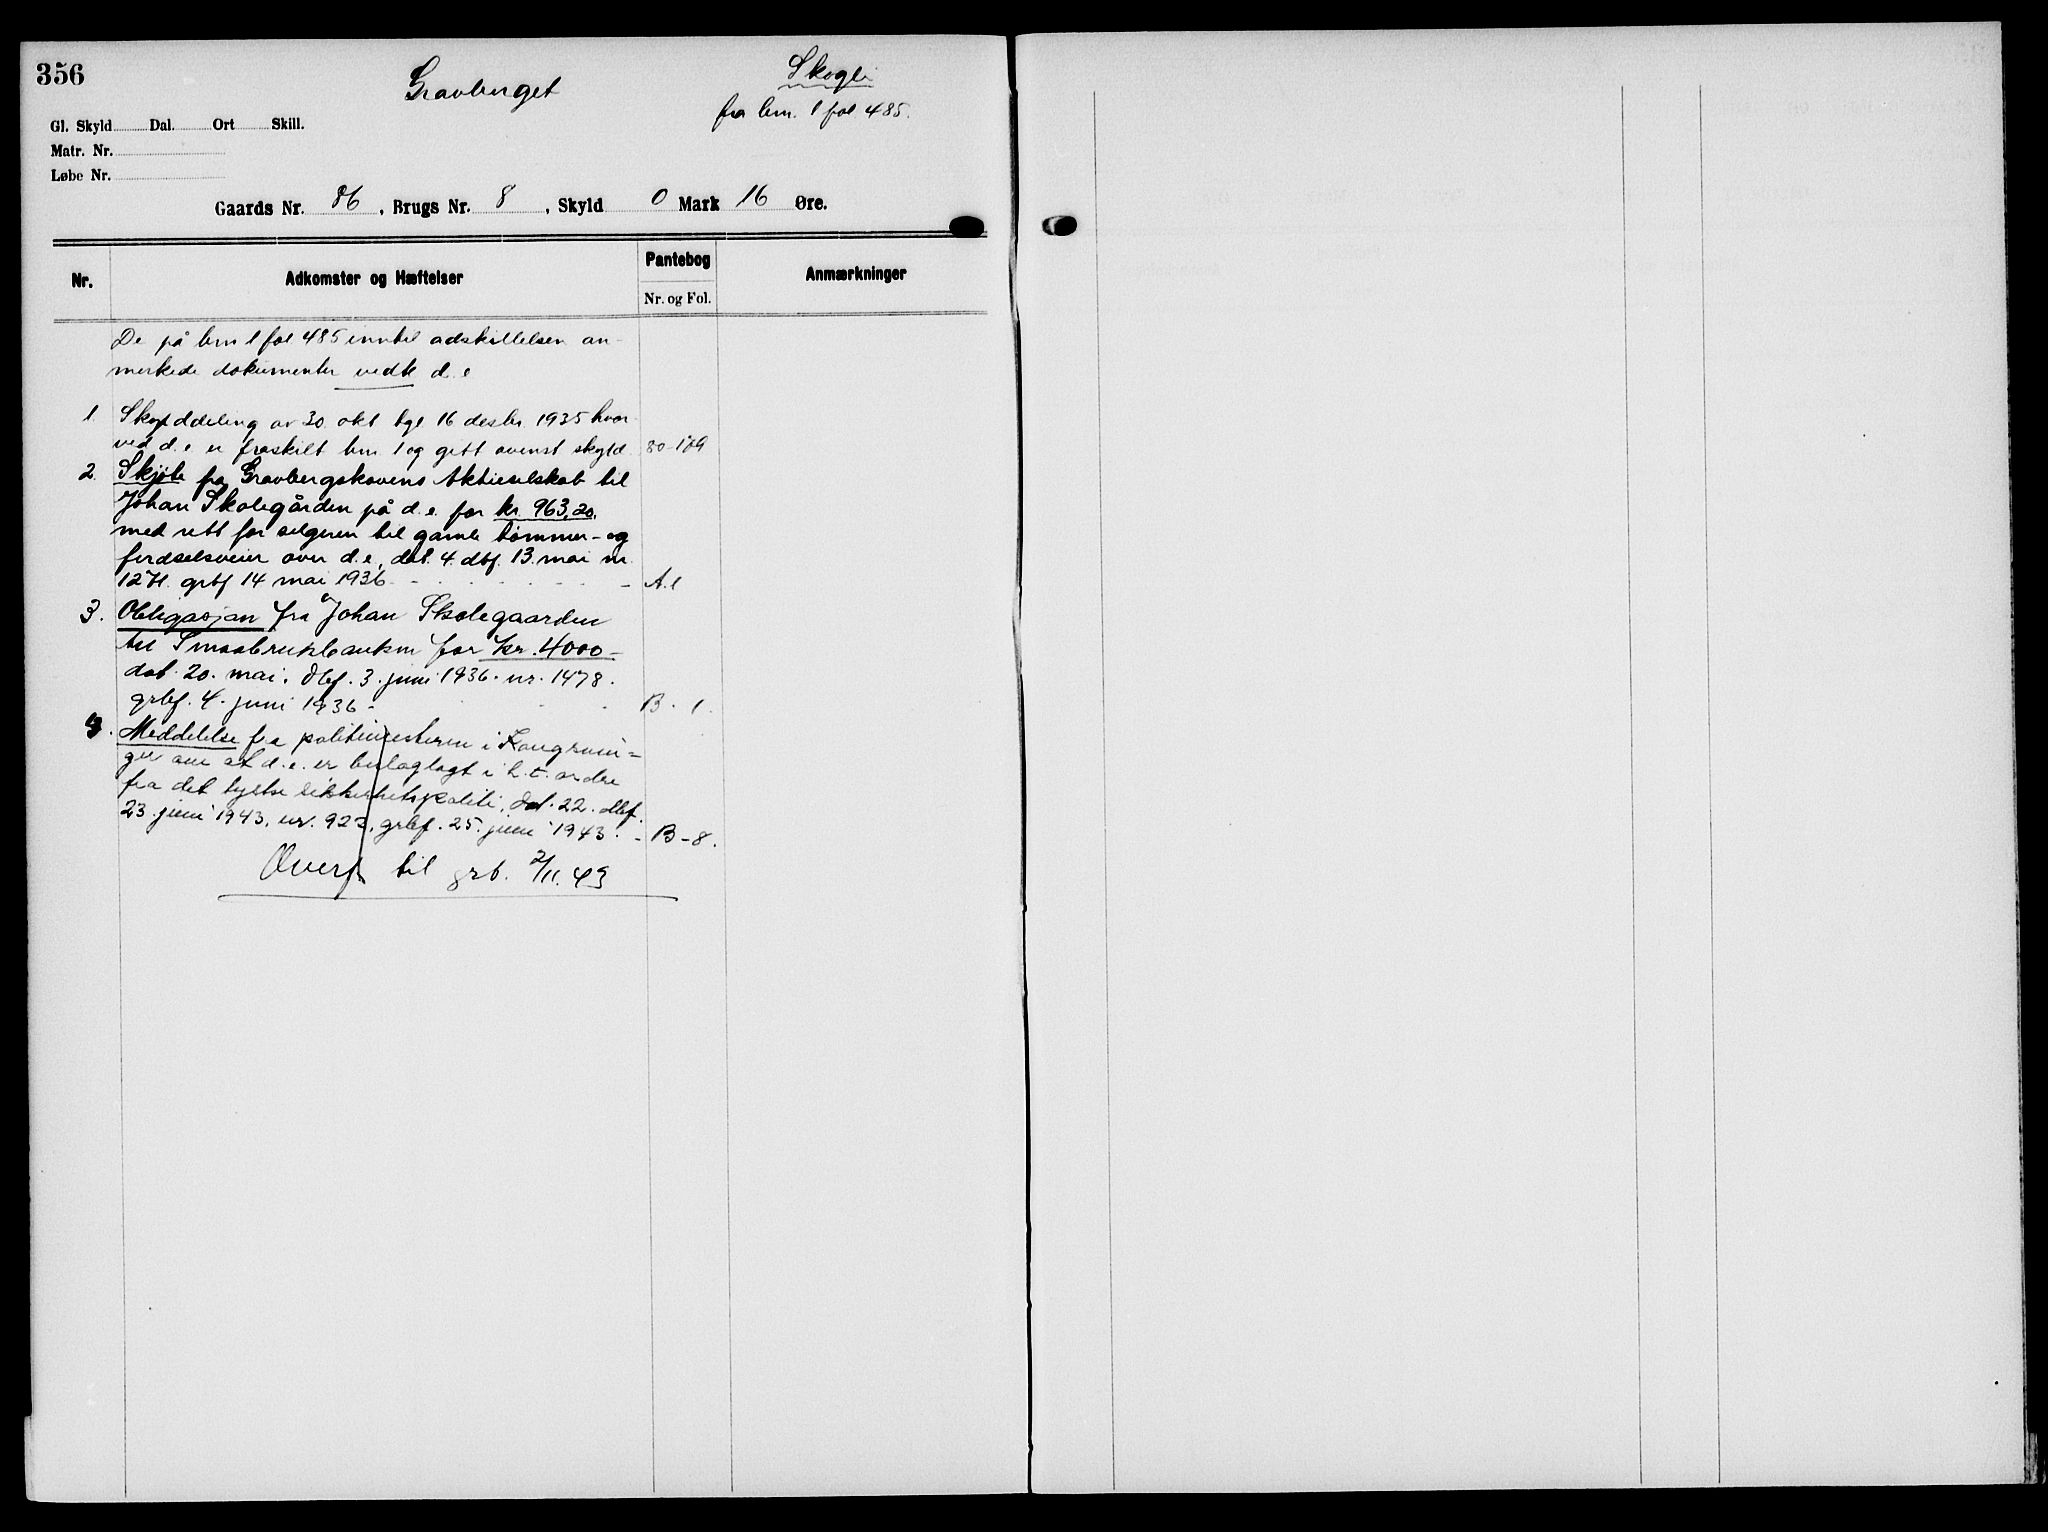 356
Gravberget
Skogli
fra brn. 1 fol 485.
Gl. Skyld Dal. Ort Skill.
Matr. Nr.
Løbe Nr.
Gaards Nr. 86, Brugs Nr. 8, Skyld 0 Mark 16 Øre.
Nr. Adkomster og Hæftelser Pantebog Anmærkninger
Nr. og Fol.
De på brn 1 fol 485 inntil adskillelsen an-
merkede dokumenter vedk d. e
1. Skylddeling av 30 okt tgl 16 desbr 1935 hvor-
ved d. e er fraskilt brn 1 og gitt ovenst skyld. 80-189
2. Skjöte fra Gravbergskovens Aktieselskab til
Johan Skolegården på d. e. for kr. 963,20.
med rett for selgeren til gamle tömmer- og
ferdselsveier over d. e., dat. 4. dbf. 13. mai nr.
1271. grbf 14 mai 1936 - A. 1
3. Obligasjon fra Johan Skolegaarden
til Smaabrukbanken for kr. 4000-
dat. 20. mai. dbf. 3. juni 1936. nr. 1478.
grbf. 4. juni 1936 - B. 1.
4. Meddelelse fra politimesteren i Kongsvin=
ger om at d. e. er beslaglagt i h. t. ordre
fra det tyske sikkerhetspoliti, dat. 22. dbf.
23. juni 1943, nr. 922, grbf. 25. juni 1943. - B-8.
Overf. til grb. 2/11. 43